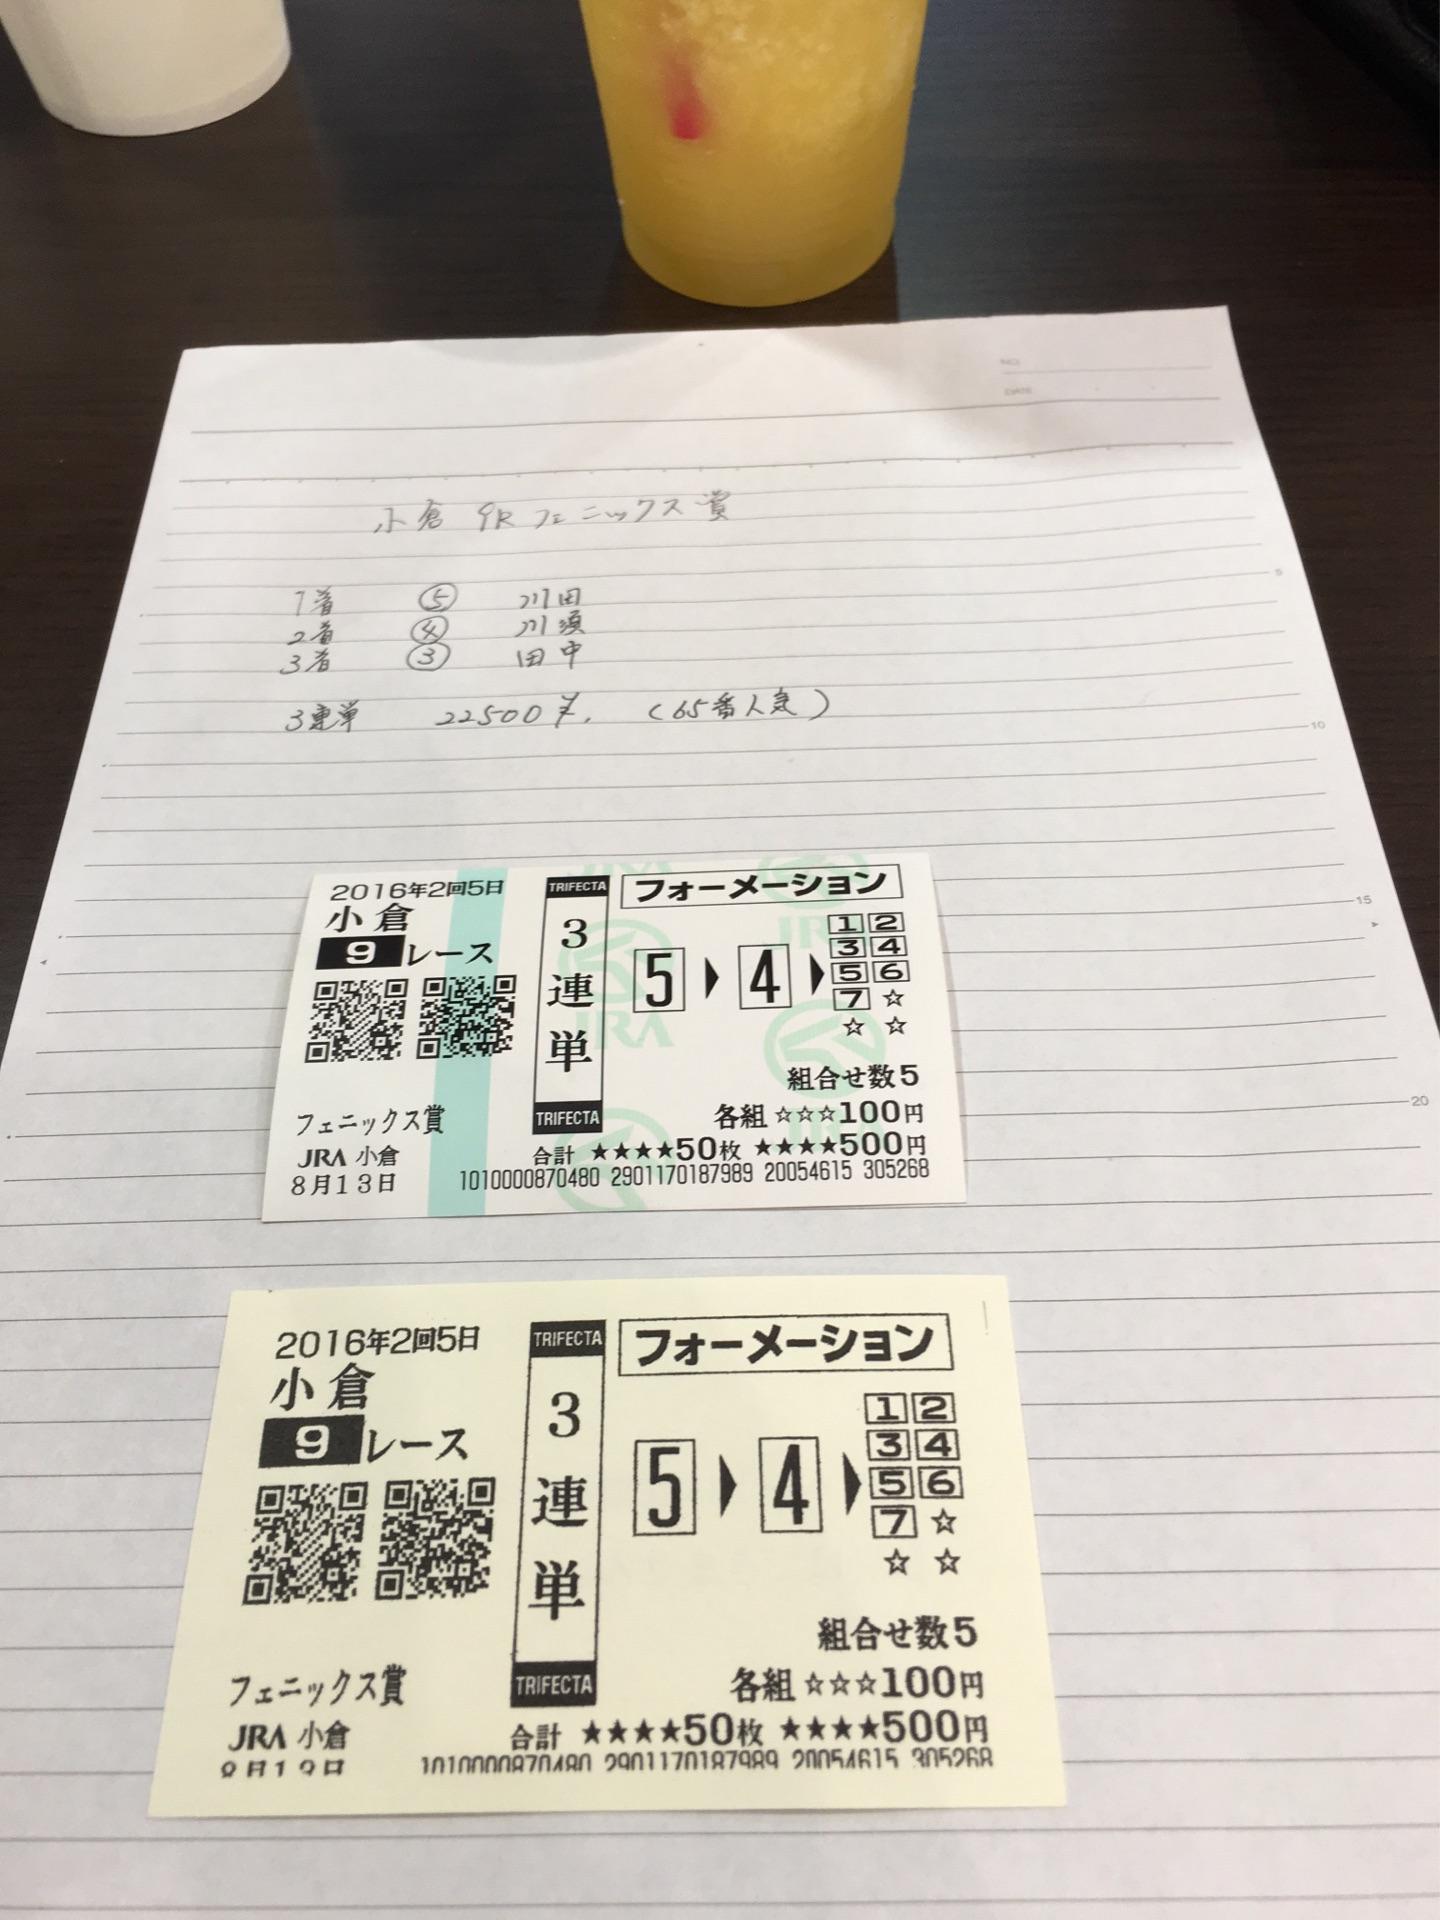 NO.
DATE
小倉 9R フェニックス賞
1着 ⑤ 川田
2着 ④ 川須
3着 ③ 田中
3連単 22500円. (65番人気)
5
10
15
20
2016年2回5日
小倉
9レース
フェニックス賞
JRA 小倉
8月13日
TRIFECTA
3連単
TRIFECTA
フォーメーション
5▶4▶
1 2
3 4
5 6
7 ☆
☆ ☆
組合せ数5
各組 ☆☆☆100円
合計 ★★★★50枚 ★★★★500円
1010000870480 2901170187989 20054615 305268
JRA
JRA
JRA
2016年2回5日
小倉
9レース
フェニックス賞
JRA 小倉
8月13日
TRIFECTA
3連単
TRIFECTA
フォーメーション
5▶4▶
1 2
3 4
5 6
7 ☆
☆ ☆
組合せ数5
各組 ☆☆☆100円
合計 ★★★★50枚 ★★★★500円
1010000870480 2901170187989 20054615 305268